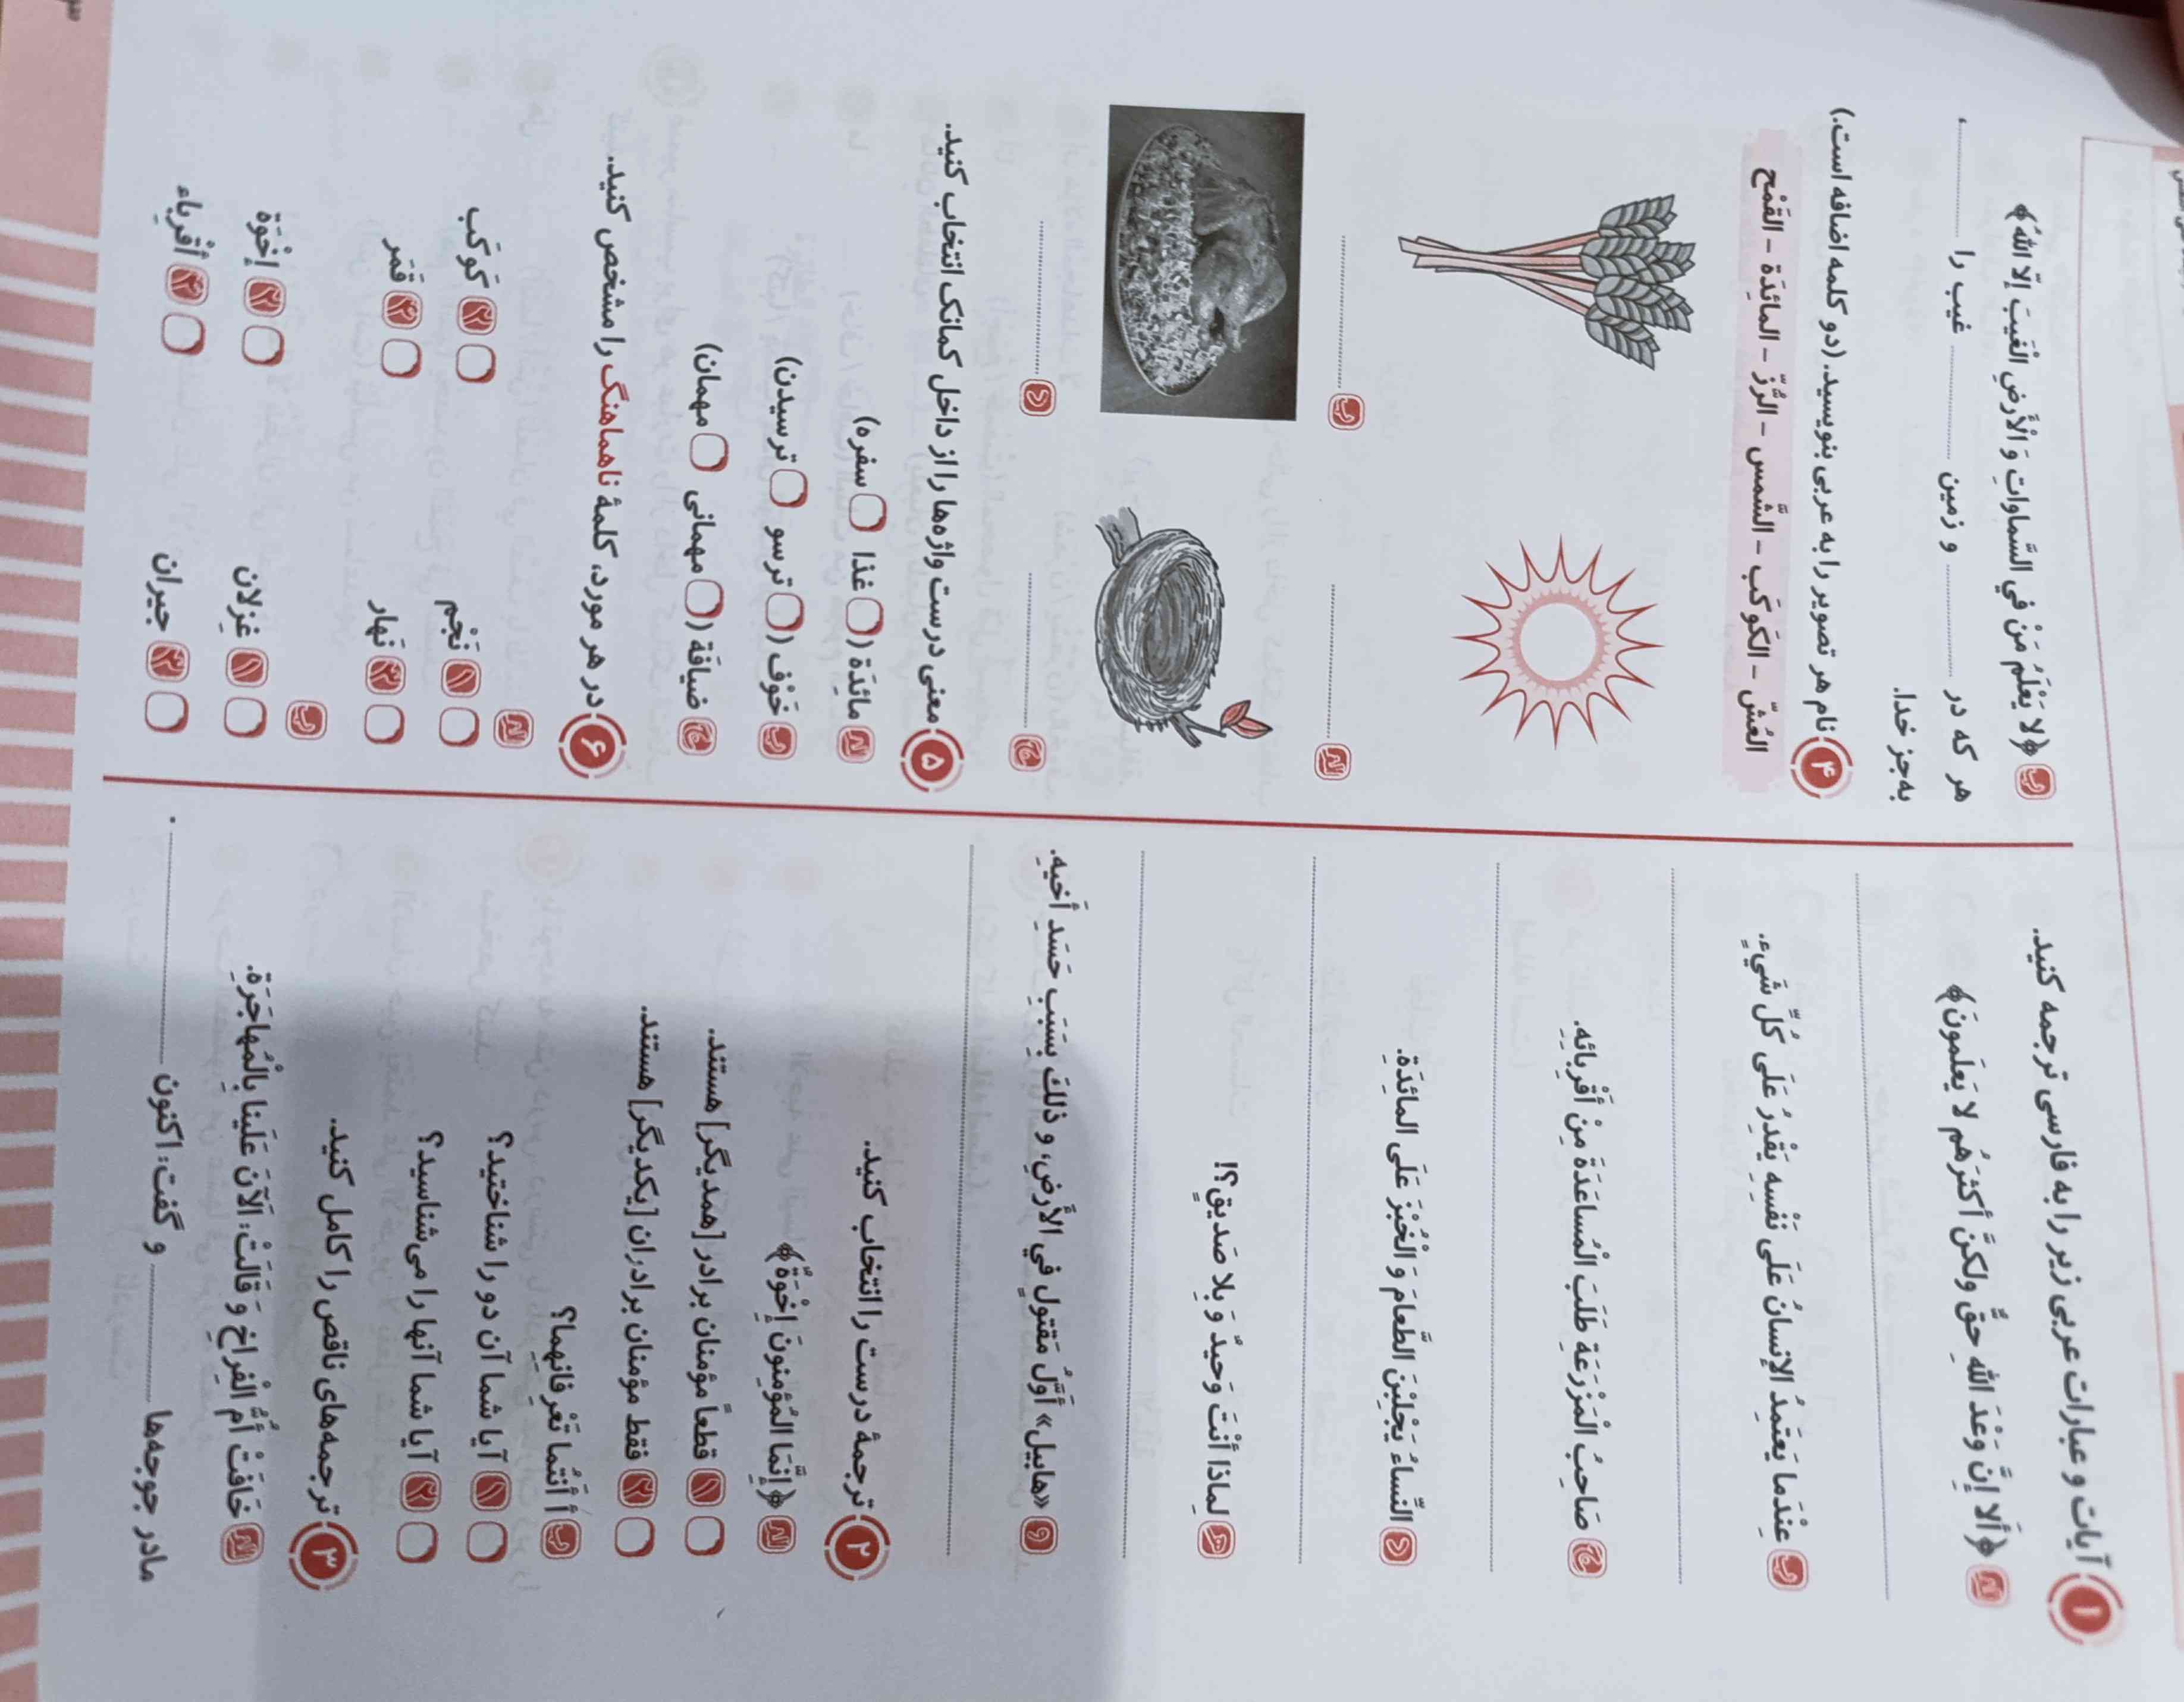 ۱ آیات و عبارات عربی زیر را به فارسی ترجمه کنید.
الف ﴿أَلا إنَّ وَعْدَ اللّٰهِ حَقٌّ ولکنَّ أکثَرَهُم لا یَعلَمونَ﴾
ب عِنْدَما یَعتَمِدُ الإنسانُ عَلَی نَفْسِهِ یَقْدِرُ عَلَی کُلِّ شَيءٍ.
ج صَاحِبُ الْمَزْرَعَةِ طَلَبَ الْمُساعَدَةَ مِنْ أَقْرِبائِهِ.
د النِّساءُ یَجْلِبْنَ الطَّعامَ وَ الْخُبْزَ عَلَی المائِدَةِ.
هـ لِماذا أَنْتَ وَحیدٌ وَ بِلا صَدیقٍ؟!
و «هابیل» أَوَّلُ مَقتولٍ في الأَرضِ، و ذلِكَ بِسَبَبِ حَسَدِ أَخیهِ.
۲ ترجمهٔ درست را انتخاب کنید.
الف ﴿إنَّمَا المُؤمِنونَ إخْوَةٌ﴾
۱ قطعاً مؤمنان برادر [همدیگر] هستند.
۲ فقط مؤمنان برادران [یکدیگر] هستند.
ب أَ أَنْتُما تَعْرِفانِهِما؟
۱ آیا شما آن دو را شناختید؟
۲ آیا شما آنها را می‌شناسید؟
۳ ترجمه‌های ناقص را کامل کنید.
الف خَافَتْ أُمُّ الْفِراخِ وَ قَالَتْ: اَلآنَ عَلَینا بِالْمُهاجَرَةِ.
مادر جوجه‌ها ........ و گفت: اکنون ........ .
ب ﴿لا یَعْلَمُ مَنْ فِي السَّماواتِ وَ الْأَرضِ الْغَیبَ إلّا اللّٰهُ﴾
هر که در ........ و زمین ........ غیب را ........ ،
به‌جز خدا.
۴ نام هر تصویر را به عربی بنویسید. (دو کلمه اضافه است.)
العُشّ – الکَوکَب – الشَّمس – الرُّزّ – المائِدَة – القَمْح
الف ........ ب ........
ج ........ د ........
۵ معنی درست واژه‌ها را از داخل کمانک انتخاب کنید.
الف مائِدَة ( غذا سفره)
ب خَوْف ( ترسو ترسیدن)
ج ضیافَة ( مهمانی مهمان)
۶ در هر مورد، کلمهٔ ناهماهنگ را مشخص کنید.
الف
۱ نَجْم ۲ کَوکَب
۳ نَهار ۴ قَمَر
ب
۱ غِزلان ۲ إخْوَة
۳ جیران ۴ أَقْرِباء